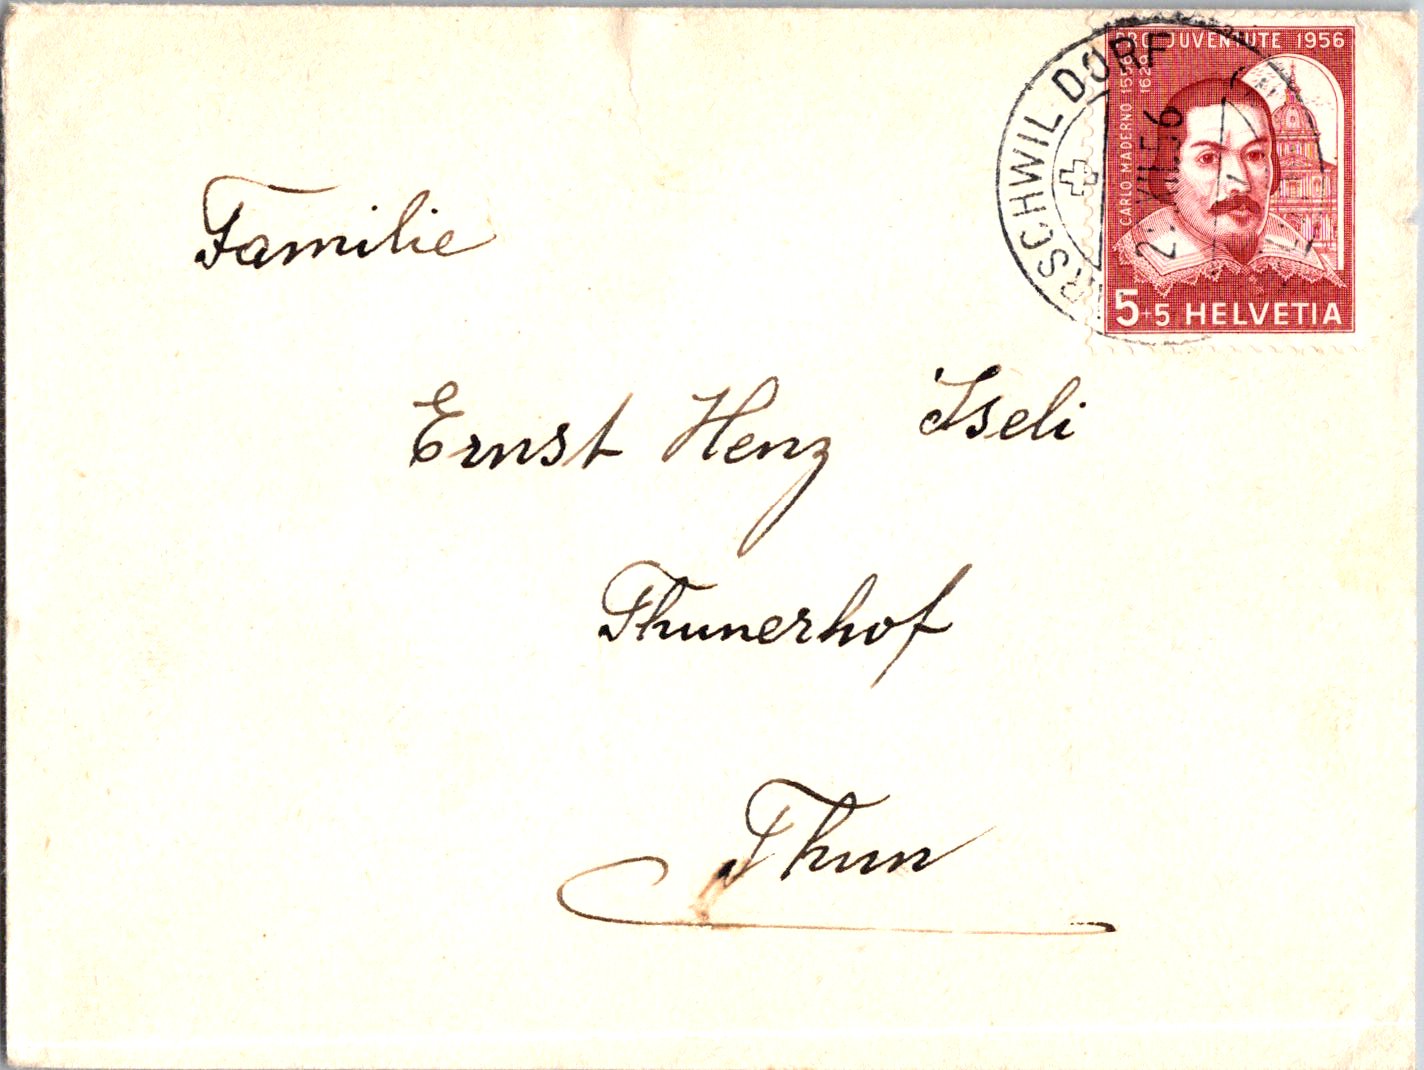 PRO JUVENTUTE 1956
CARLO MADERNO 1556
1629
5+5 HELVETIA
RSCHWIL DORF
2. XII. 56
Familie
Ernst Henz Iseli
Thunerhof
Thun